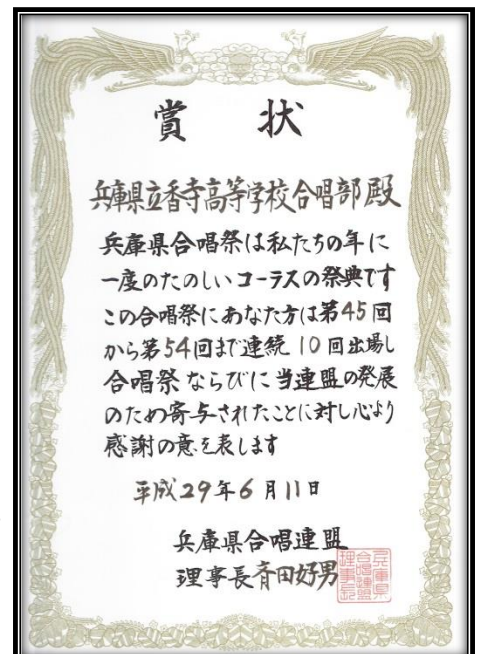 賞 状
兵庫県立香寺高等学校合唱部殿
兵庫県合唱祭は私たちの年に
一度のたのしいコーラスの祭典です
この合唱祭にあなた方は第45回
から第54回まで連続10回出場し
合唱祭ならびに当連盟の発展
のため寄与されたことに対し心より
感謝の意を表します
平成29年6月11日
兵庫県合唱連盟
理事長斉田好男
兵庫県
合唱連盟
理事長